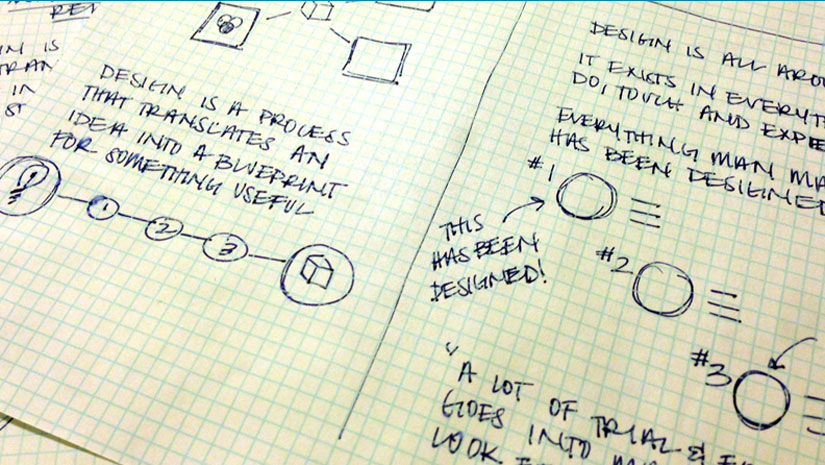 IN IS
IN
ST
DESIGN IS A PROCESS
THAT TRANSLATES AN
IDEA INTO A BLUEPRINT
FOR SOMETHING USEFUL
1
2
3
DESIGN IS ALL
IT EXISTS IN
DO, TOUCH AND
EVERYTHING MAN
HAS BEEN DESIGNED
#1
THIS
HAS BEEN
DESIGNED!
#2
#3
"A LOT OF TRIAL &
GOES INTO
LOOK